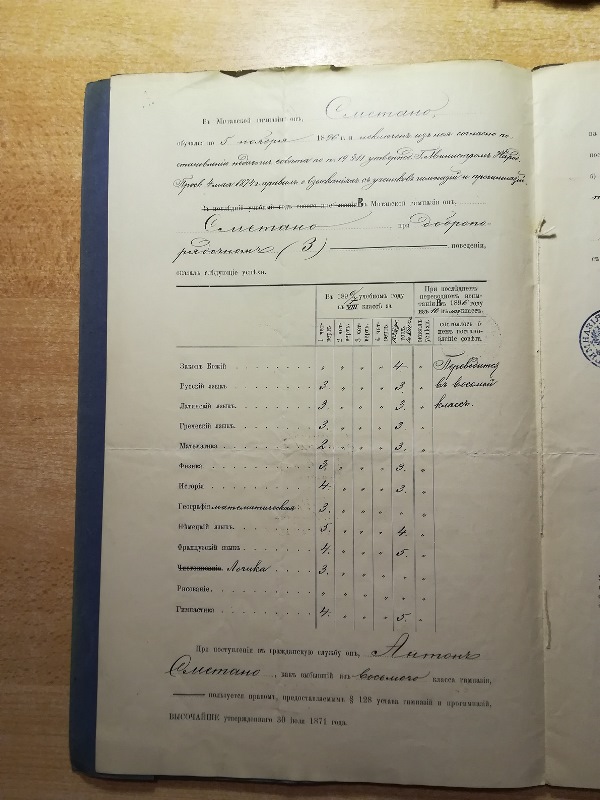 въ Митавской гимназіи онъ, Сметано,
обучался по 5 ноября 1896 г. и исключенъ изъ нея согласно по-
становленія педагогич. совѣта по п. утвержд. Г. Министромъ Народ.
Просв. 4 мая 1874 г. правилъ о взысканіяхъ съ учениковъ гимназій и прогимназій.
Въ Митавской гимназіи онъ,
Сметано при добропо-
рядочномъ (3) поведеніи,
оказалъ слѣдующіе успѣхи.
Въ 1896/7 учебномъ году
въ VIII классѣ за
При послѣднемъ
переводномъ испы-
таніи въ 1896 году
1 чет-
верть.
2 чет-
верть.
3 чет-
верть.
4 чет-
верть.
состоялось о
немъ постано-
вленіе совѣта.
Законъ Божій " " " " 4 " Переводится
Русскій языкъ 3 " " " 3. " въ восьмой
Латинскій языкъ 3 " " " 3. " классъ.
Греческій языкъ 3 " " " 3. "
Математика 2. " " " 3. "
Физика 3. " " " 3. "
Исторія 4. " " " 3. "
Географія математическая 3. " " " " "
Нѣмецкій языкъ 5. " " " 4. "
Французскій языкъ 4. " " " 5. "
Логика 3. " " " " "
Рисованіе " " " " " "
Гимнастика 4. " " " 5. "
При поступленіи въ гражданскую службу онъ, Антонъ
Сметано, какъ выбывшій изъ восьмого класса гимназіи,
пользуется правомъ, предоставляемымъ § 128 устава гимназій и прогимназій,
ВЫСОЧАЙШЕ утвержденнаго 30 іюля 1871 года.